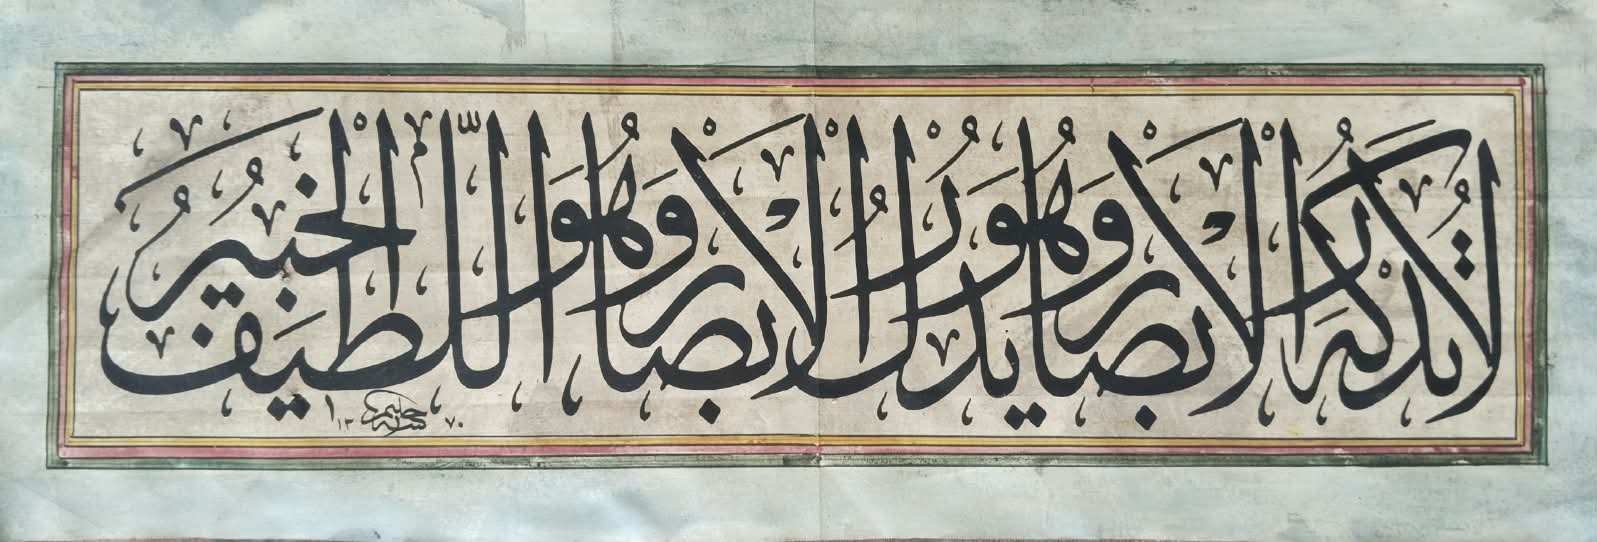 لَا تُدْرِكُهُ الْأَبْصَارُ وَهُوَ يُدْرِكُ الْأَبْصَارَ وَهُوَ اللَّطِيفُ الْخَبِيرُ
كتبه حليم ١٣٧٠